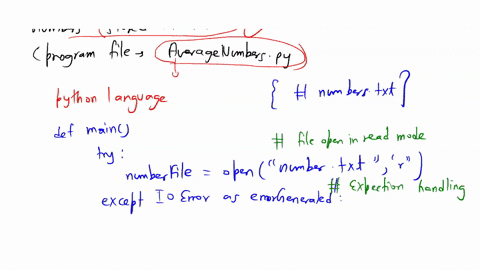 (program file → AverageNumbers.py
python language
{ # numbers.txt }
def main()
# file open in read mode
try:
numberFile = open("number.txt", "r")
# Expection handling
except IOError as errorGenerated: